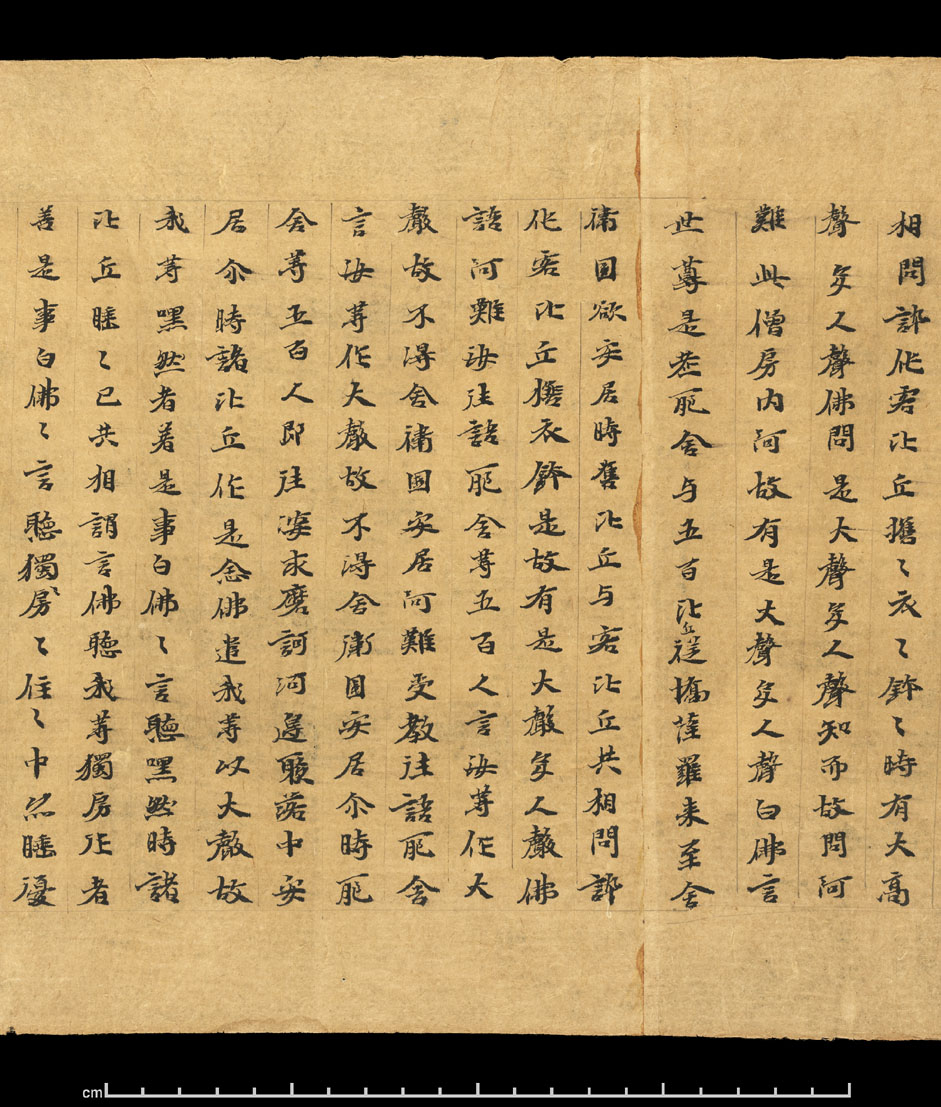 相問訊代客比丘擔〻衣〻鉢〻時有大高
聲多人聲佛問是大聲多人聲知而故問阿
難此僧房内何故有是大聲多人聲白佛言
世尊是老耶舍与五百比丘從憍薩羅来至舍
衛國欲安居時舊比丘与客比丘共相問訊
代客比丘擔衣鉢是故有是大聲多人聲佛
語阿難汝往語耶舍等五百人言汝等作大
聲故不得舍衛國安居阿難受教往語耶舍
言汝等作大聲故不得舍衛國安居尒時耶
舍等五百人即往婆求磨訶河邊聚落中安
居尒時諸比丘作是念佛遣我等以大聲故
我等嘿然者善是事白佛〻言聽嘿然時諸
比丘睡〻已共相謂言佛聽我等獨房住者
善是事白佛〻言聽獨房〻〻住〻中睡復